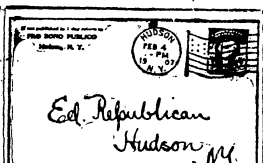 If not published in 5 days return to
PRO BONO PUBLICO
Hudson, N. Y.
HUDSON
FEB 4
PM
1907
N.Y.
Ed. Republican
Hudson
N.Y.